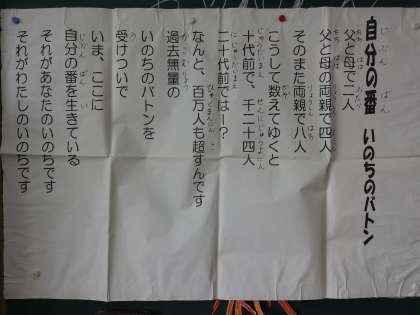 自分の番 いのちのバトン
父と母で二人
父と母の両親で四人
そのまた両親で八人
こうして数えてゆくと
十代前で、千二十四人
二十代前では―?
なんと、百万人も超すんです
過去無量の
いのちのバトンを
受けついで
いま、ここに
自分の番を生きている
それがあなたのいのちです
それがわたしのいのちです